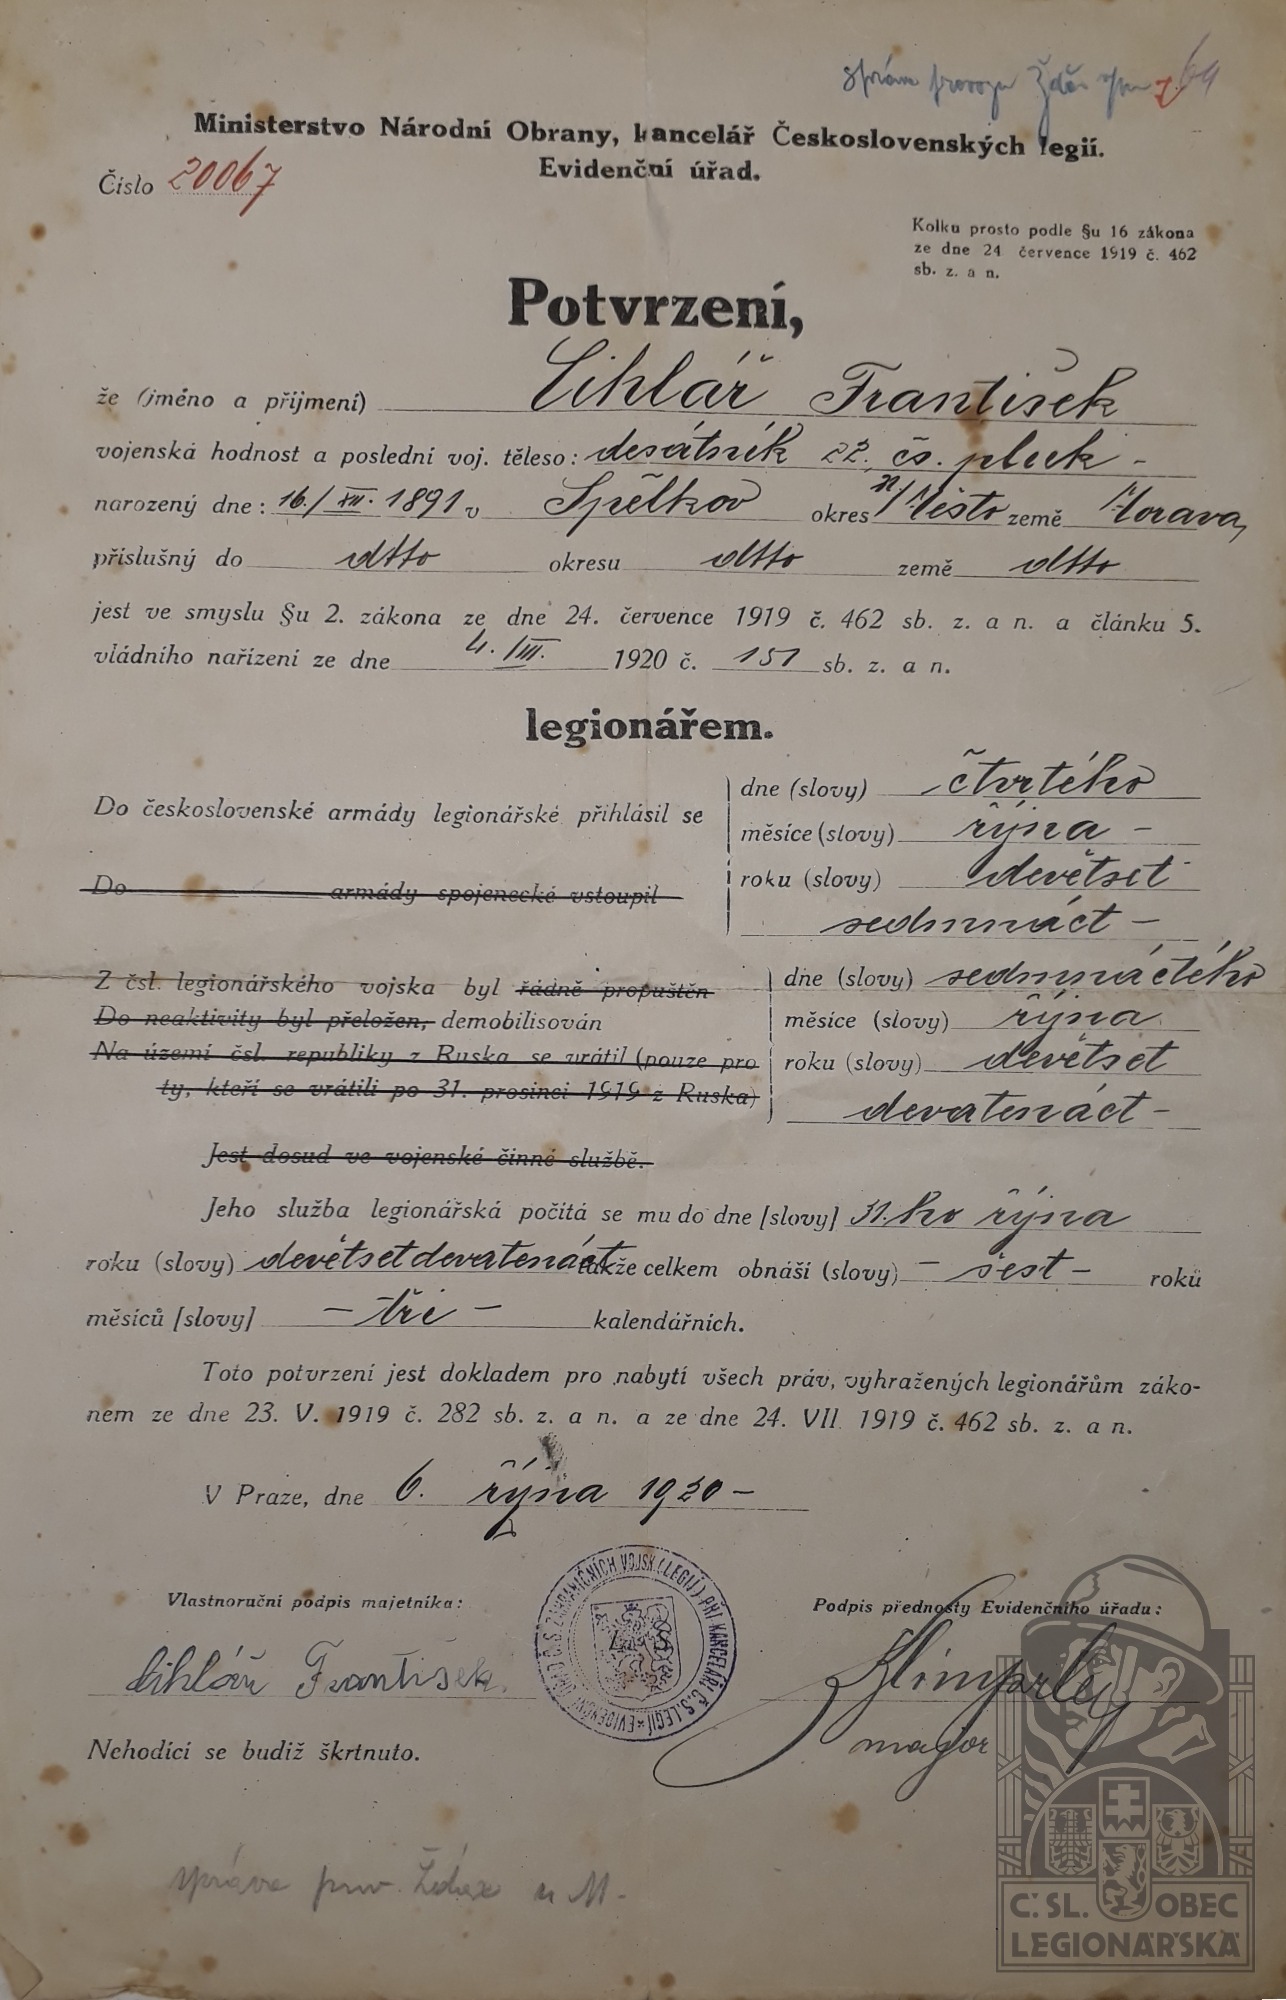 správa provozu Žďár 7. 64
Ministerstvo Národní Obrany, kancelář Československých legií.
Evidenční úřad.
Číslo 20067
Kolku prosto podle §u 16 zákona
ze dne 24 července 1919 č. 462
sb. z. a n.
Potvrzení,
že (jméno a příjmení) Cihlář František
vojenská hodnost a poslední voj. těleso: desátník 22. čs. pluk -
narozený dne: 16./XII. 1891 v Spělkov okres n/Město země Morava,
příslušný do dtto okresu dtto země dtto
jest ve smyslu §u 2. zákona ze dne 24. července 1919 č. 462 sb. z. a n. a článku 5.
vládního nařízení ze dne 4./III. 1920 č. 151 sb. z. a n.
legionářem.
Do československé armády legionářské přihlásil se
Do armády spojenecké vstoupil
dne (slovy) čtvrtého
měsíce (slovy) října -
roku (slovy) devětset
sedmnáct -
Z čsl. legionářského vojska byl řádně propuštěn
Do neaktivity byl přeložen, demobilisován
Na území čsl. republiky z Ruska se vrátil (pouze pro
ty, kteří se vrátili po 31. prosinci 1919 z Ruska)
dne (slovy) sedmnáctého
měsíce (slovy) října
roku (slovy) devětset
devatenáct -
Jest dosud ve vojenské činné službě.
Jeho služba legionářská počítá se mu do dne [slovy] 31.ho října
roku (slovy) devětsetdevatenáct takže celkem obnáší (slovy) - šest - roků
měsíců [slovy] - tři - kalendářních.
Toto potvrzení jest dokladem pro nabytí všech práv, vyhražených legionářům záko-
nem ze dne 23. V. 1919 č. 282 sb. z. a n. a ze dne 24. VII. 1919 č. 462 sb. z. a n.
V Praze, dne 6. října 1920 -
Vlastnoruční podpis majetníka:
Cihlář František.
EVIDENČNÍ ÚŘAD Č.S. ZAHRANIČNÍCH VOJSK (LEGIÍ) PŘI KANCELÁŘI Č.S. LEGIÍ
Podpis přednosty Evidenčního úřadu:
major
Nehodící se budiž škrtnuto.
správa prov. Žďár n M.
Č. SL. OBEC
LEGIONÁŘSKÁ